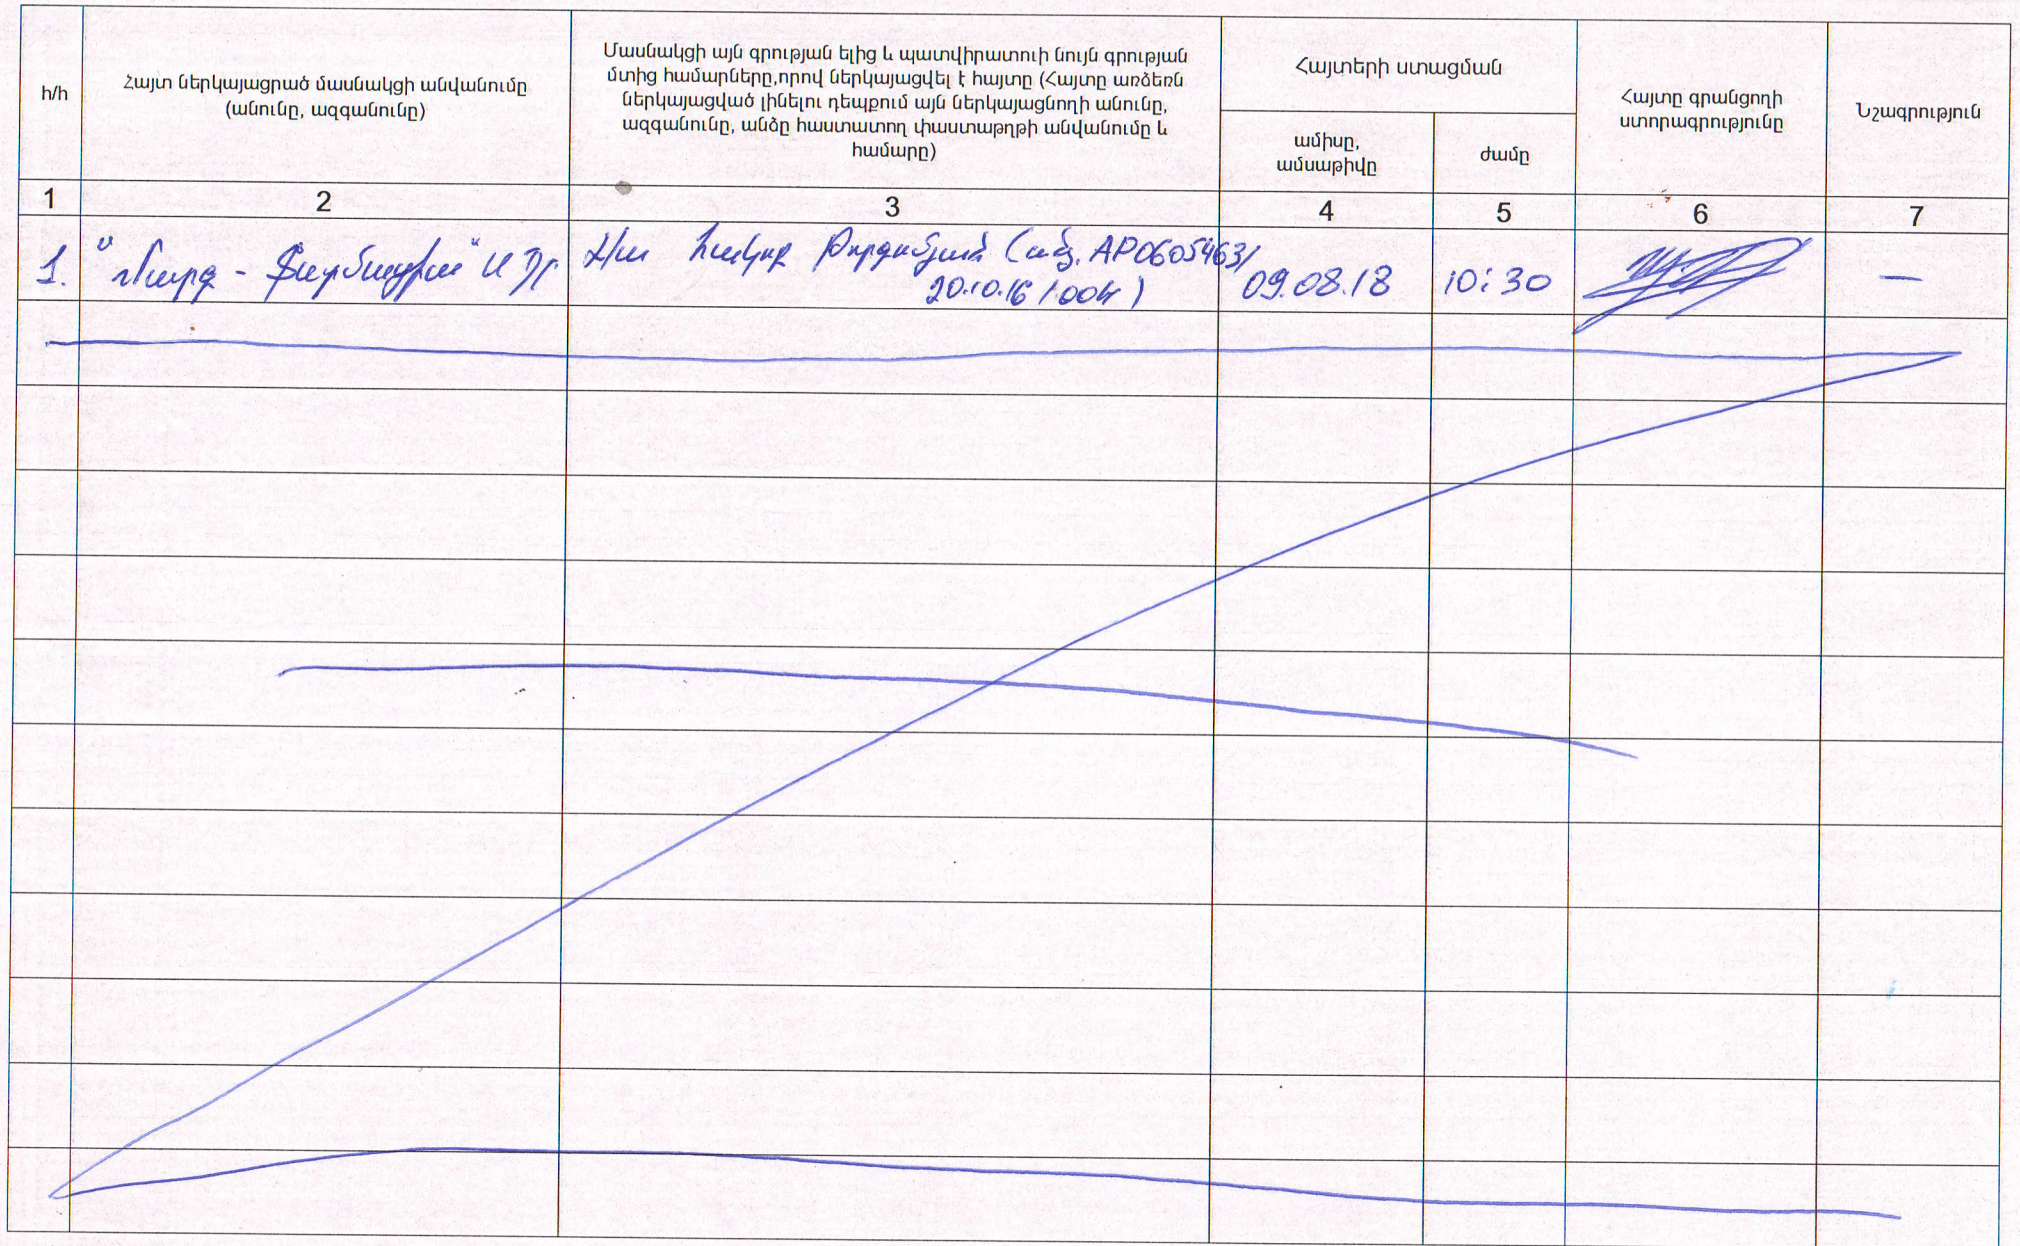 հ/հ
Հայտ ներկայացրած մասնակցի անվանումը
(անունը, ազգանունը)
Մասնակցի այն գրության ելից և պատվիրատուի նույն գրության
մտից համարները,որով ներկայացվել է հայտը (Հայտը առձեռն
ներկայացված լինելու դեպքում այն ներկայացնողի անունը,
ազգանունը, անձը հաստատող փաստաթղթի անվանումը և
համարը)
Հայտերի ստացման
ամիսը,
ամսաթիվը
ժամը
Հայտը գրանցողի
ստորագրությունը
Նշագրություն
1 2 3 4 5 6 7
1.
Հակոբ (անձ. AP0605463/
20.10.16
09.08.18
10:30
—